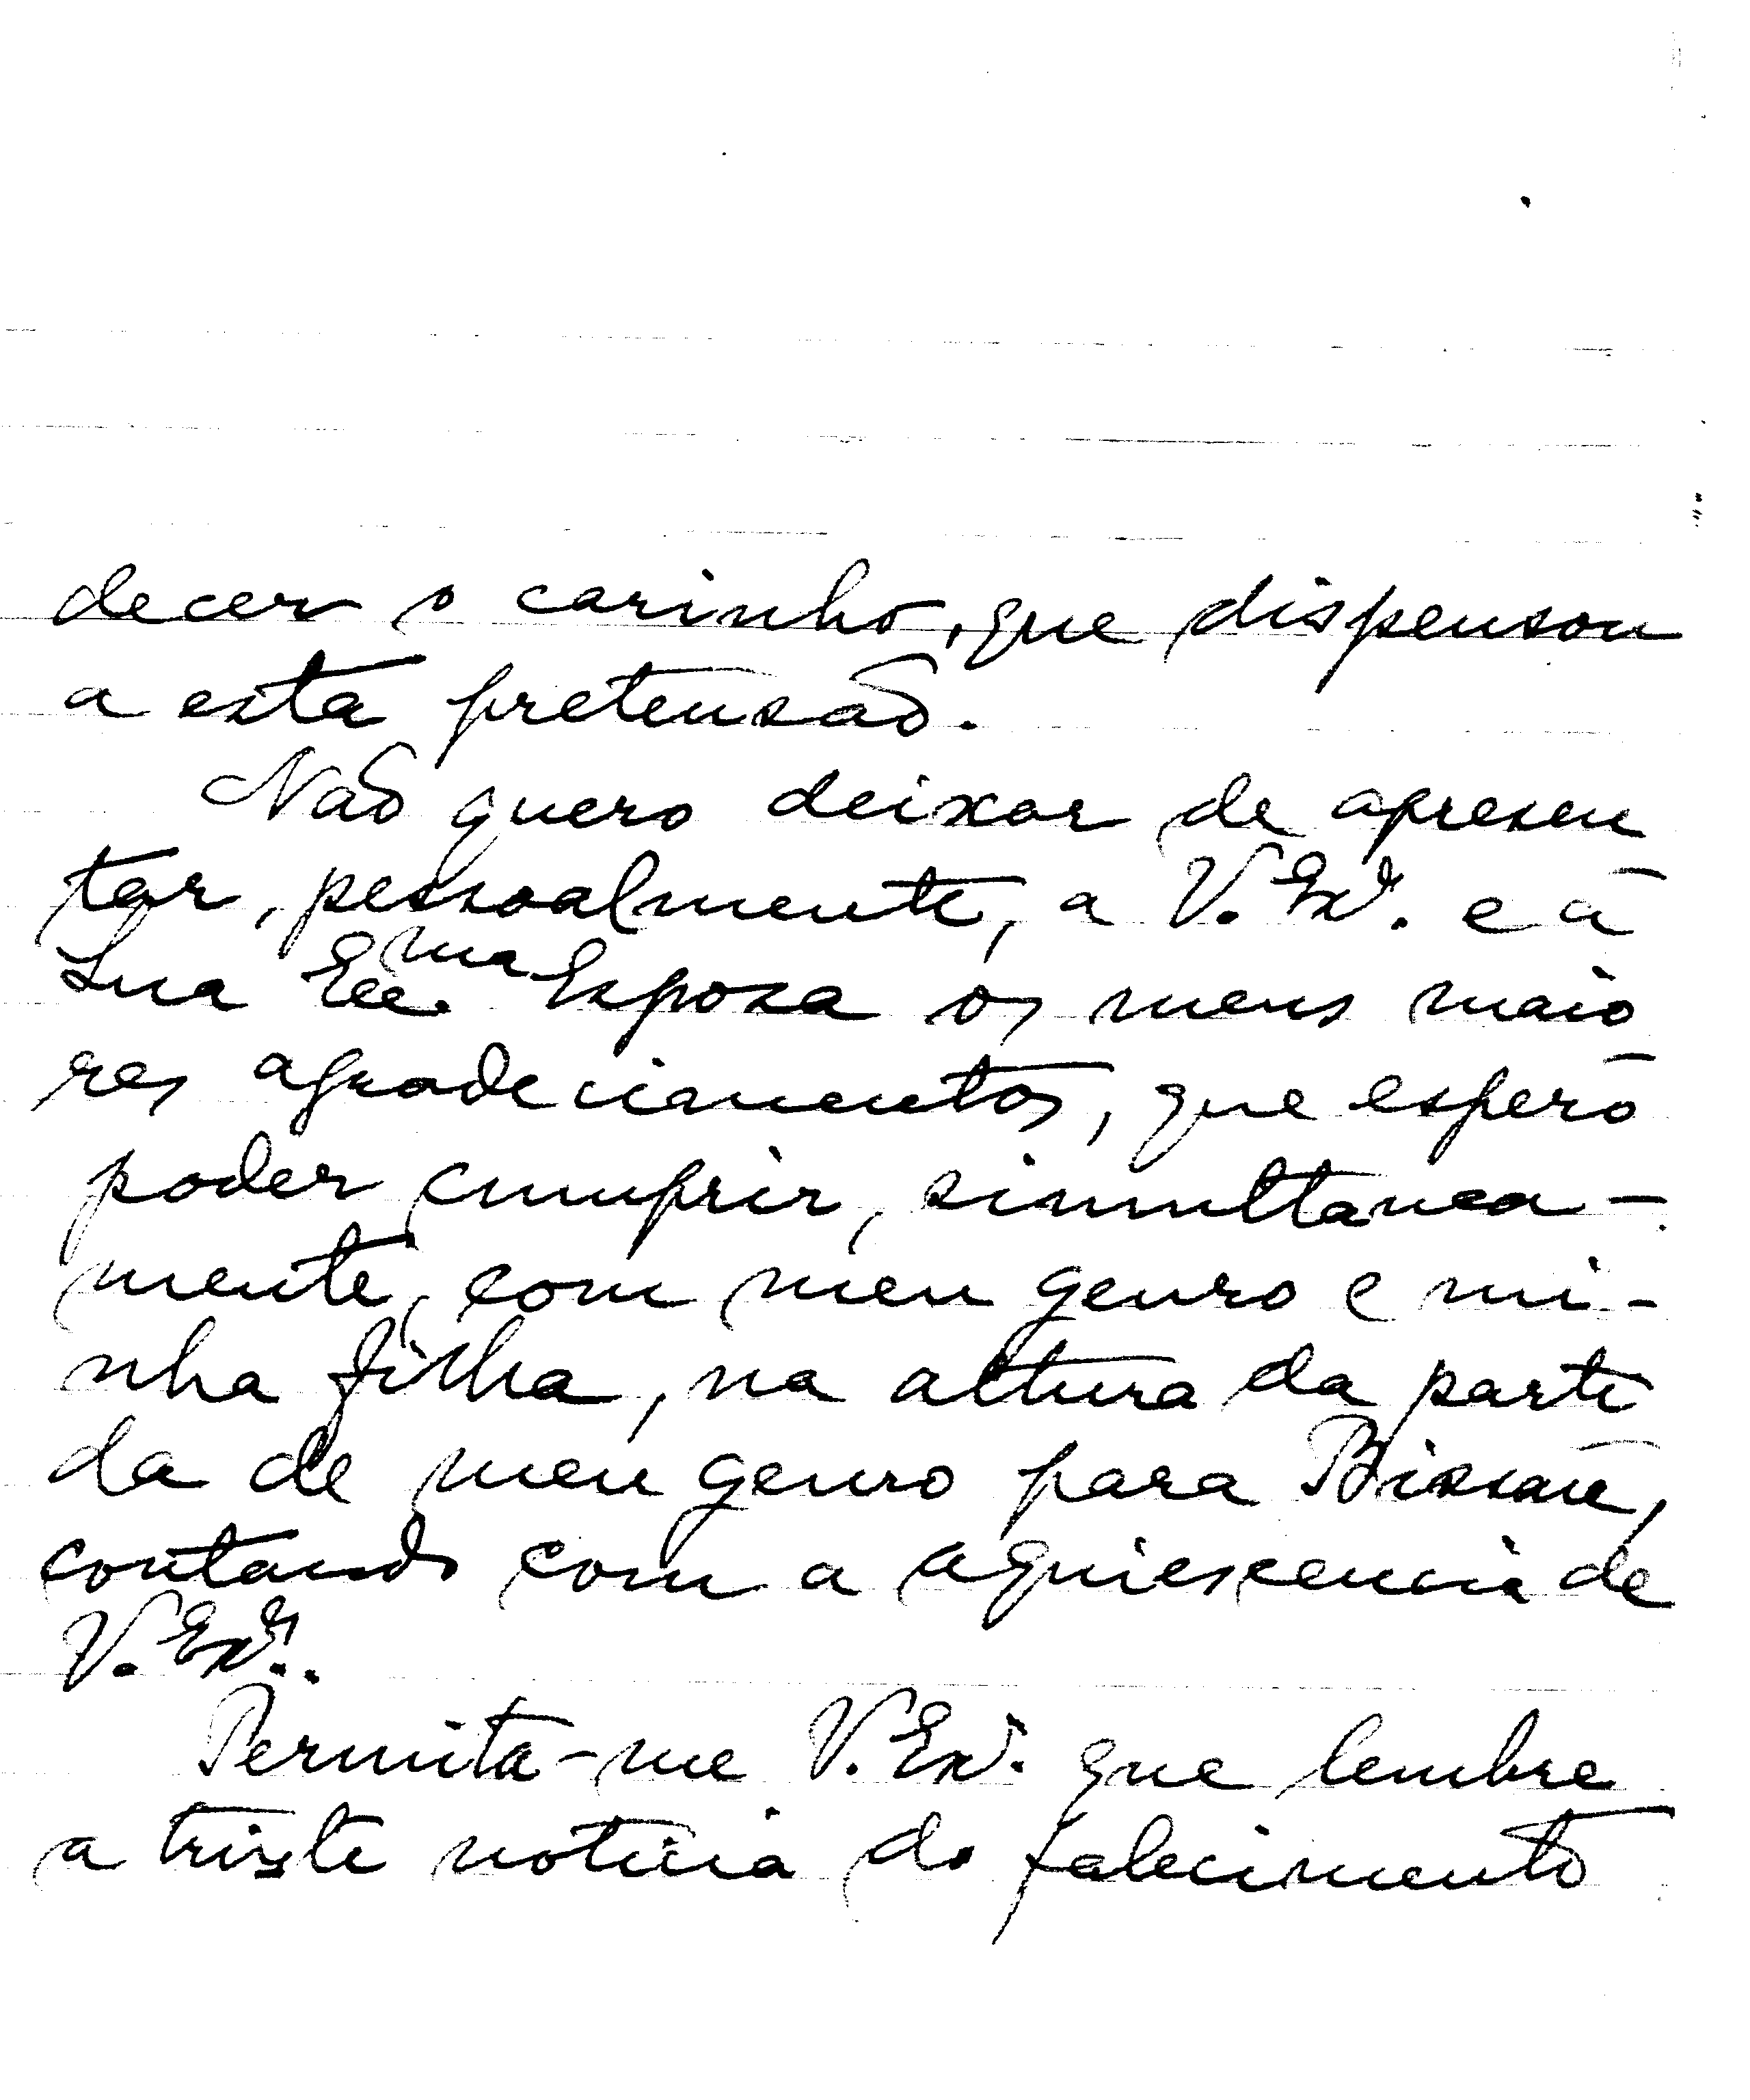 decer o carinho, que dispensou
a esta pretensão.
Não quero deixar de apresen
tar, pessoalmente, a V. Exª. e à
Sua Exma. Esposa os meus maio
res agradecimentos, que espero
poder cumprir, simultanea-
mente, com meu genro e mi-
nha filha, na altura da parti
da de meu genro para Bissau,
contando com a aquiescencia de
V. Exª..
Permita-me V. Exª. que lembre
a triste noticia do falecimento